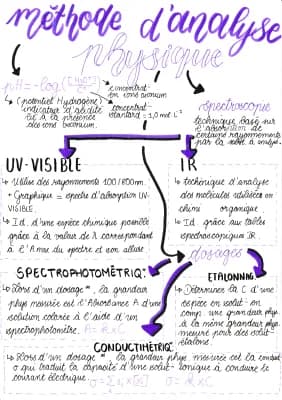 méthode d'analyse
physique
pH = -log([H₃O⁺]/c°)
concentrat°
en ions oxonium
↳ (potentiel Hydrogène)
indicateur d'acidité
lié à la présence
des ions oxonium.
concentrat°
standard = 1,0 mol.L⁻¹
spectroscopie
technique basée sur
l'absorption de
certains rayonnements
par la
UV-VISIBLE
↳ Utilise des rayonnements 100/800nm.
↳ Graphique = spectre d'absorption UV-
VISIBLE.
↳ Id. d'une espèce chimique possible
grâce à la valeur de λ correspondant
à l'A max du spectre et son allure.
IR
↳ technique d'analyse
des molécules utilisées en
chimi organique
↳ Id. grâce aux tables
spectroscopiques IR.
dosages
SPECTROPHOTOMÉTRIQ:
↳ Hors d'un dosage, la grandeur
phys mesurée est l'Absorbance A d'une
solution colorée à l'aide d'un
spectrophotomètre. A = k x C
ETALONNAG:
↳ Déterminer la C d'une
espèce en solut° en
comp une grandeur phys
à la même grandeur phys
mesurée pour des solut°
étalons.
CONDUCTIMÉTRIQ:
↳ Hors d'un dosage, la grandeur phys. mesurée est la conduct
σ qui traduit la capacité d'une solut° ionique à conduire le
courant électrique. σ = Σ λi x [Xi] σ = k x C